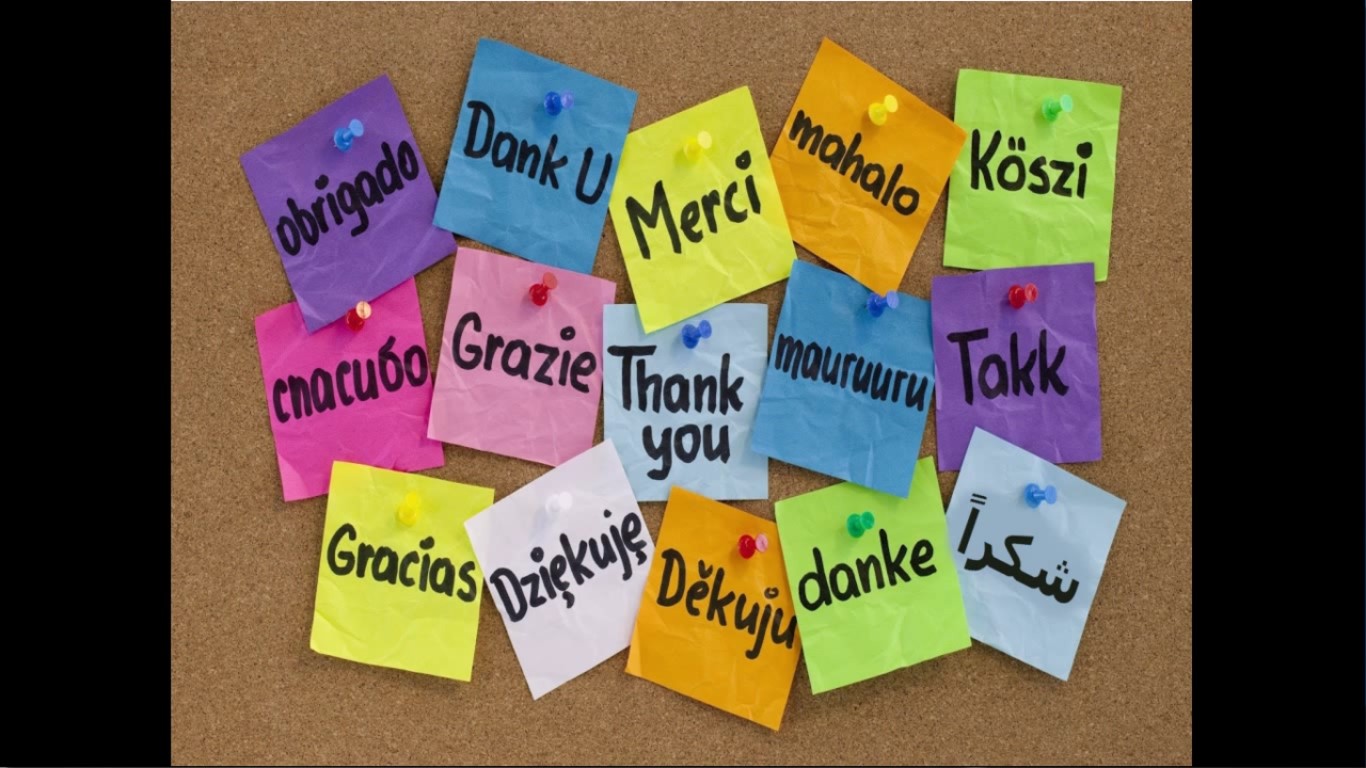 obrigado
Dank U
Merci
mahalo
Köszi
спасибо
Grazie
Thank
you
mauruuru
Takk
Gracias
Dziękuję
Děkuju
danke
شكراً